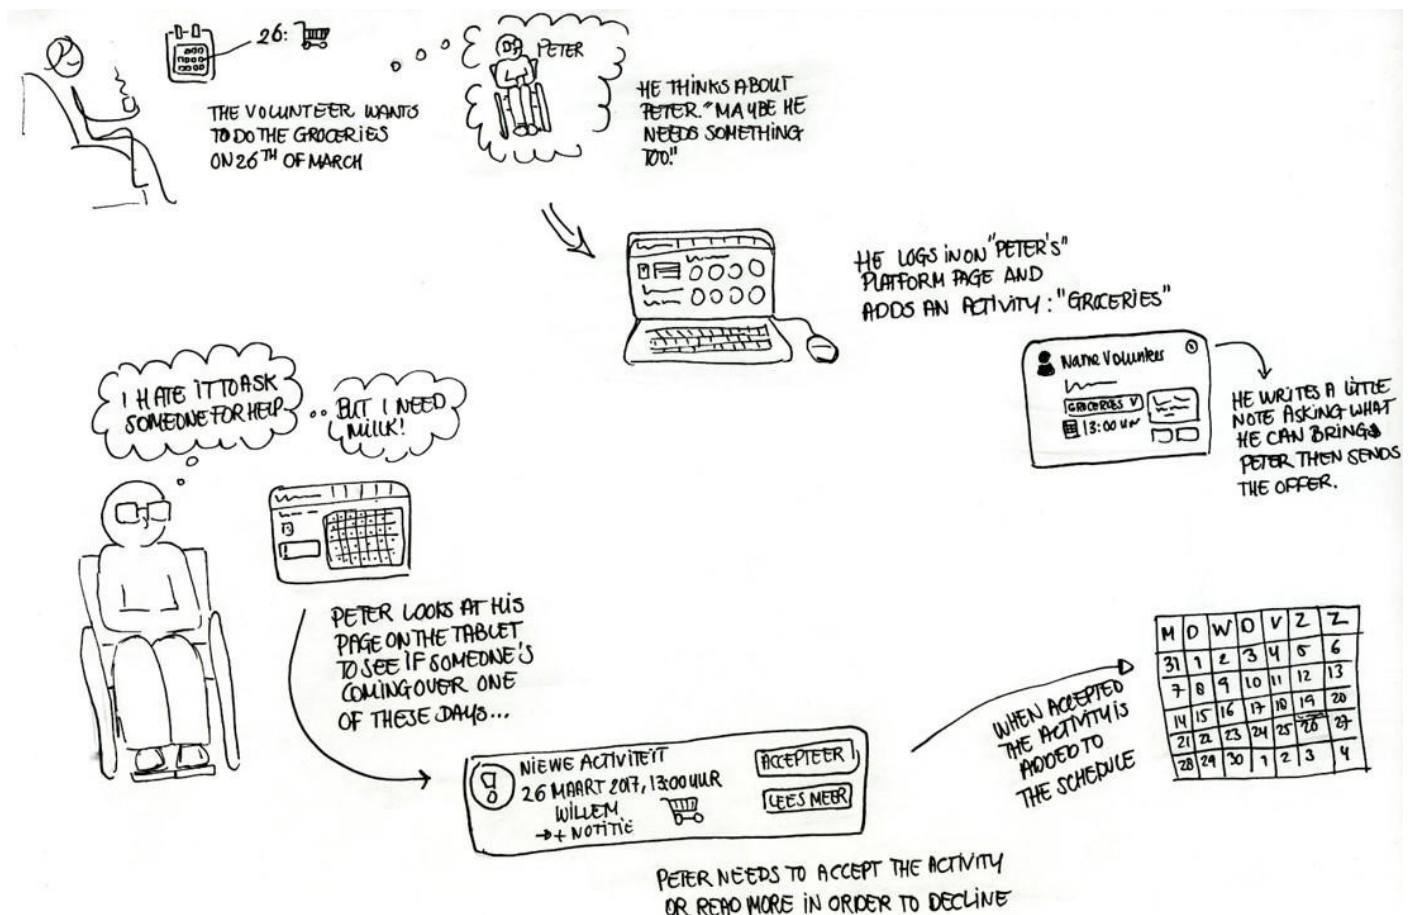 26:
THE VOLUNTEER WANTS
TO DO THE GROCERIES
ON 26TH OF MARCH
PETER
HE THINKS ABOUT
PETER. "MAYBE HE
NEEDS SOMETHING
TOO."
HE LOGS IN ON "PETER'S"
PLATFORM PAGE AND
ADDS AN ACTIVITY: "GROCERIES"
Name Volunteer
GROCERIES V
13:00 UUR
HE WRITES A LITTLE
NOTE ASKING WHAT
HE CAN BRING
PETER THEN SENDS
THE OFFER.
I HATE IT TO ASK
SOMEONE FOR HELP
BUT I NEED
MILLK!
PETER LOOKS AT HIS
PAGE ON THE TABLET
TO SEE IF SOMEONE'S
COMING OVER ONE
OF THESE DAYS...
!
NIEWE ACTIVITEIT
26 MAART 2017, 13:00 UUR
WILLEM
→ + NOTITIE
ACCEPTEER
LEES MEER
PETER NEEDS TO ACCEPT THE ACTIVITY
OR READ MORE IN ORDER TO DECLINE
WHEN ACCEPTED
THE ACTIVITY IS
ADDED TO
THE SCHEDULE
M D W D V Z Z
31 1 2 3 4 5 6
7 8 9 10 11 12 13
14 15 16 17 18 19 20
21 22 23 24 25 26 27
28 29 30 1 2 3 4